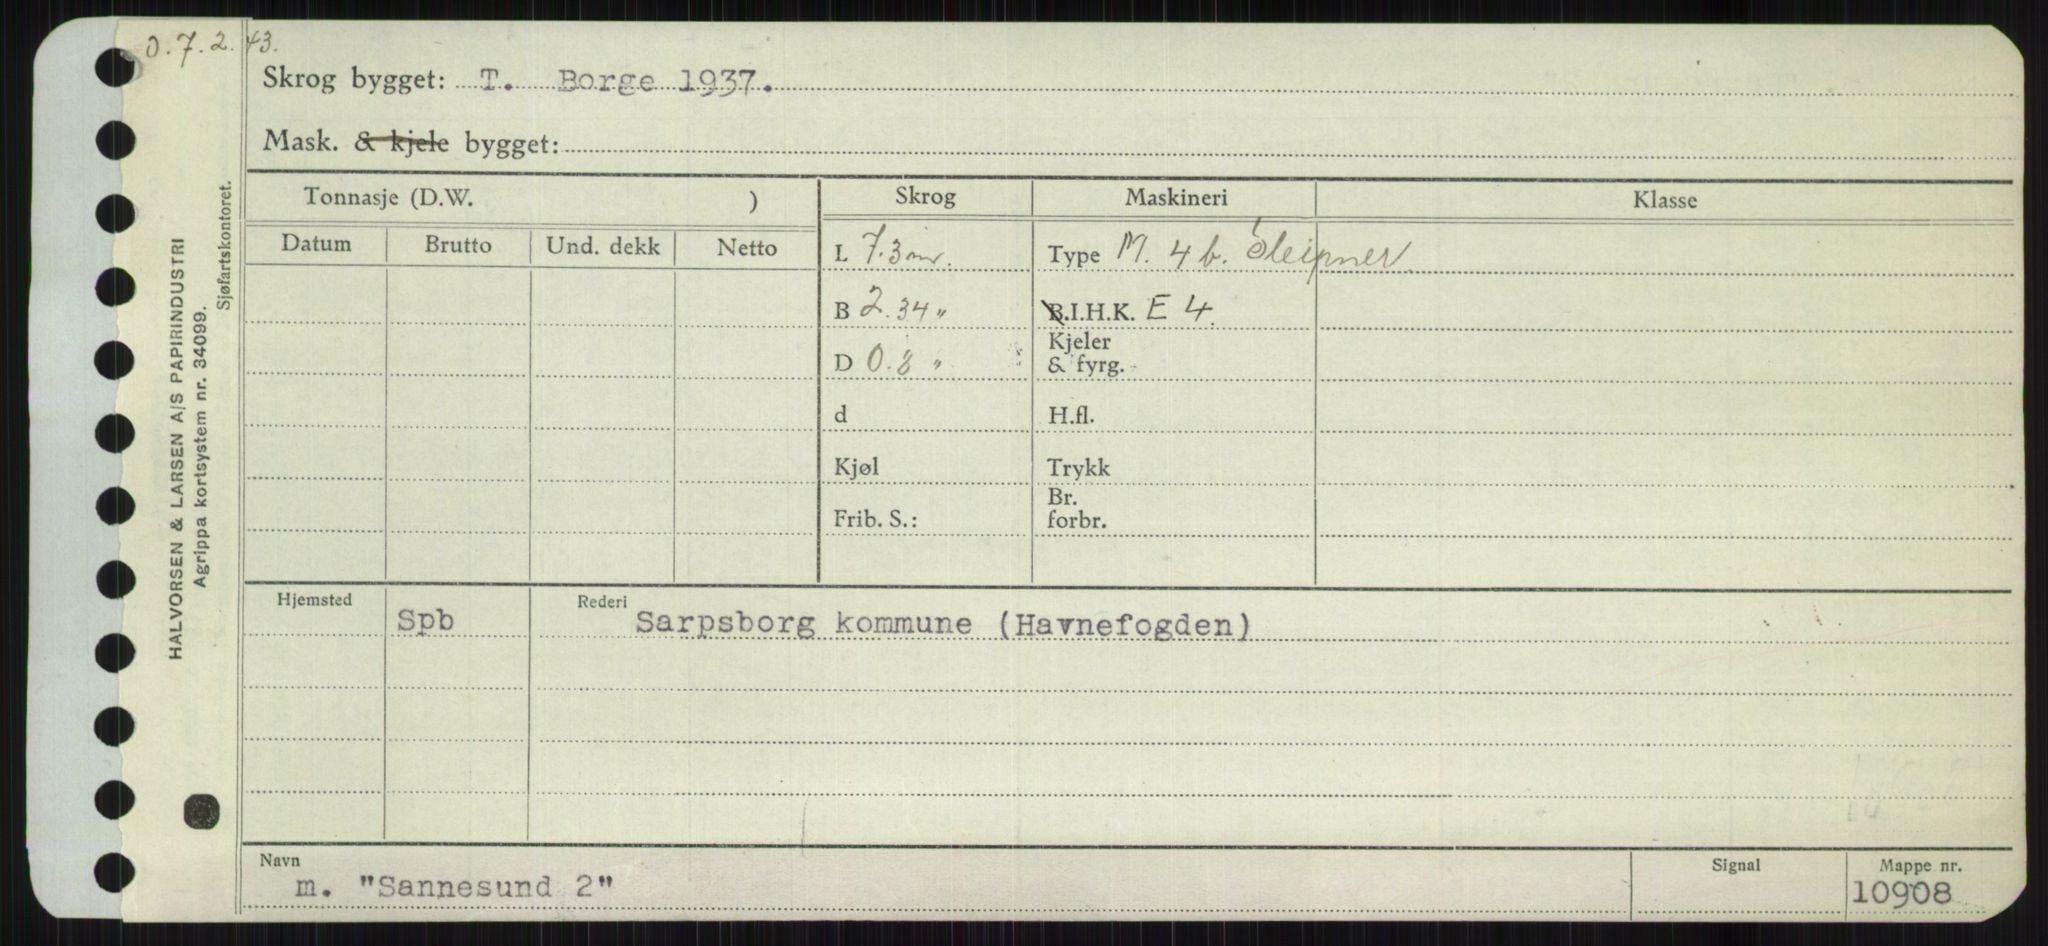 O.7.2.43.
Skrog bygget: T. Borge 1937.
Mask. & kjele bygget:
Tonnasje (D.W. )
Skrog
Maskineri
Klasse
Datum
Brutto
Und. dekk
Netto
L 7.3 m.
Type M. 4 b. Sleipner
B 2.34 "
B.I.H.K. E 4.
D 0.8 "
Kjeler
& fyrg.
d
H.fl.
Kjøl
Trykk
Frib. S.:
Br.
forbr.
Hjemsted
Spb
Rederi
Sarpsborg kommune (Havnefogden)
Navn
m. "Sannesund 2"
Signal
Mappe nr.
10908
HALVORSEN & LARSEN A/S PAPIRINDUSTRI
Agrippa kortsystem nr. 34099.
Sjøfartskontoret.